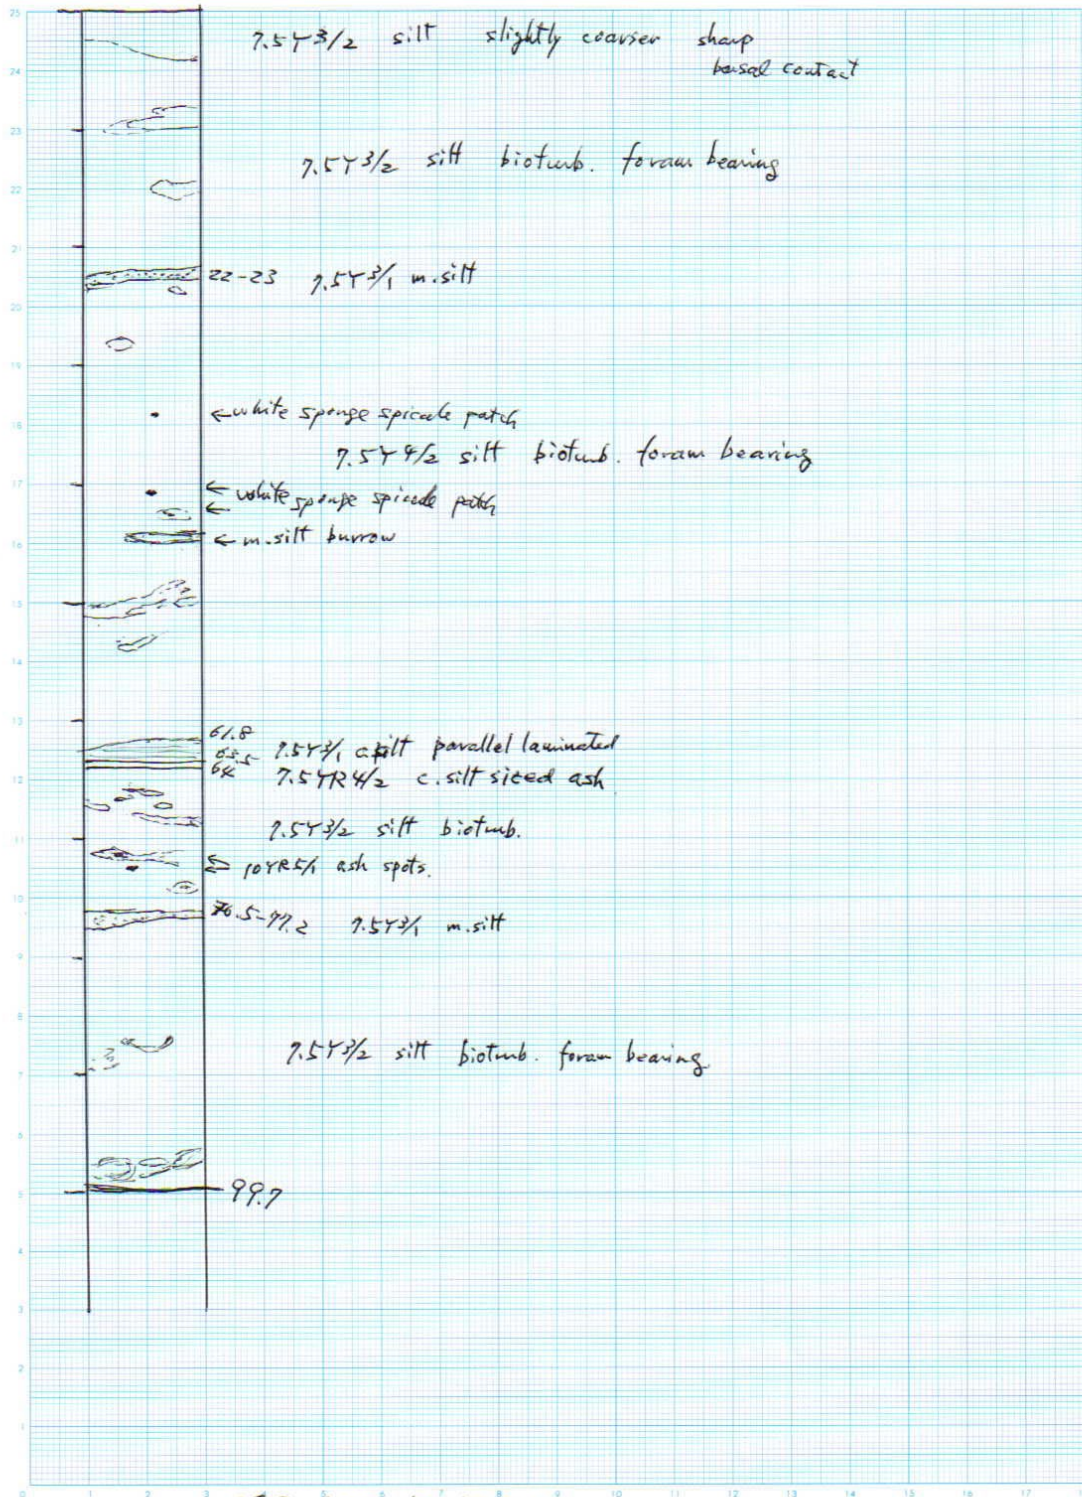 7.5Y3/2 silt slightly coarser sharp
basal contact
7.5Y3/2 silt bioturb. foram bearing
22-23 7.5Y3/1 m.silt
←white sponge spicule patch
7.5Y4/2 silt bioturb. foram bearing
←white sponge spicule patch
← m.silt burrow
61.8
63.5 7.5Y3/1 c.silt parallel laminated
64 7.5YR4/2 c.silt sized ash
7.5Y3/2 silt bioturb.
10YR5/1 ash spots.
76.5-77.2 7.5Y3/1 m.silt
7.5Y3/2 silt bioturb. foram bearing
99.7
25
24
23
22
21
20
19
18
17
16
15
14
13
12
11
10
9
8
7
6
5
4
3
2
1
0 1 2 3 4 5 6 7 8 9 10 11 12 13 14 15 16 17